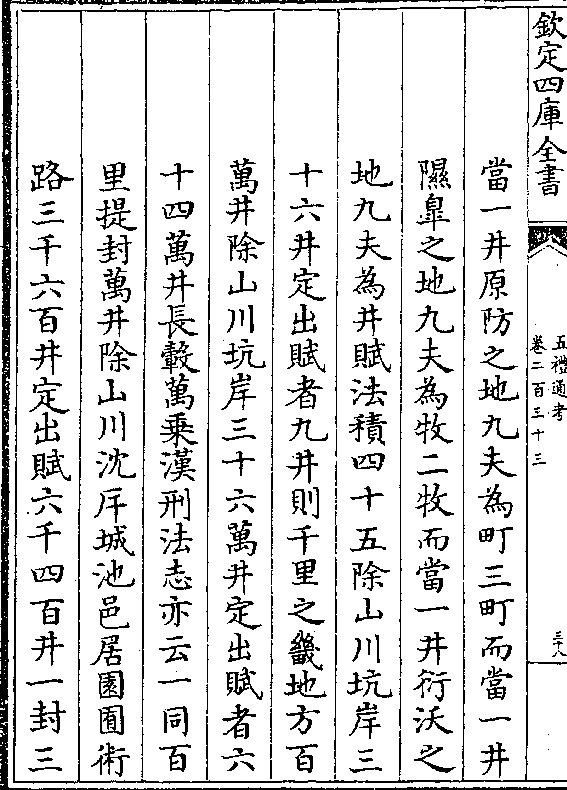 欽定四庫全書
五禮通考
卷二百三十三
三十八
當一井原防之地九夫為町三町而當一井
隰臯之地九夫為牧二牧而當一井衍沃之
地九夫為井賦法積四十五除山川坑岸三
十六井定出賦者九井則千里之畿地方百
萬井除山川坑岸三十六萬井定出賦者六
十四萬井長轂萬乗漢刑法志亦云一同百
里提封萬井除山川沈斥城池邑居園囿術
路三千六百井定出賦六千四百井一封三